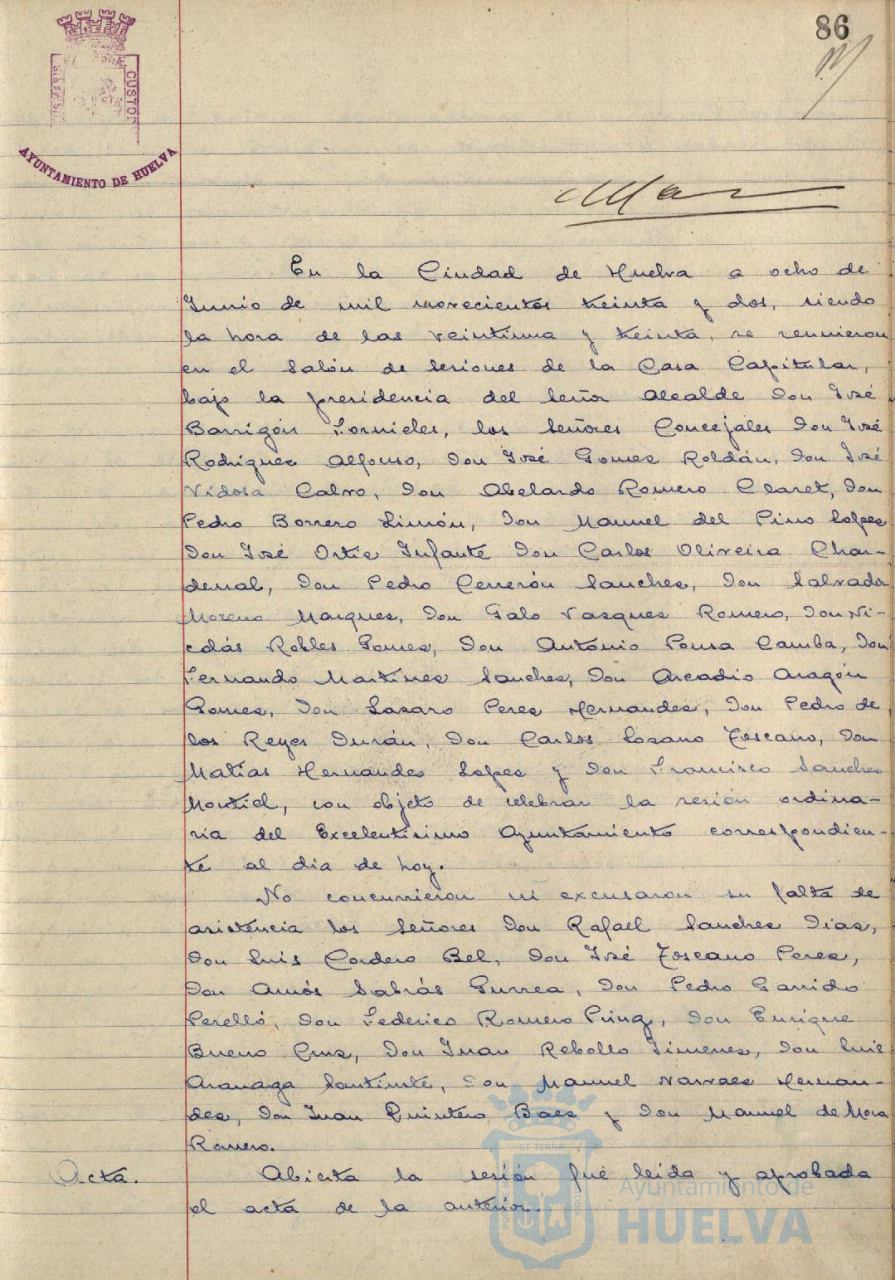 86
AYUNTAMIENTO DE HUELVA
En la Ciudad de Huelva a ocho de
Junio de mil novecientos treinta y dos, siendo
la hora de las veintiuna y treinta, se reunieron
en el Salón de Sesiones de la Casa Capitular,
bajo la presidencia del Señor Alcalde Don José
Barrigón Fornieles, los Señores Concejales Don José
Rodrigues Alfonso, Don José Gomes Roldán, Don José
Vidosa Calvo, Don Abelardo Romero Claret, Don
Pedro Borrero Limón, Don Manuel del Pino Lopes
Don José Ortis Infante Don Carlos Oliveira Char-
denal, Don Pedro Cerrejón Sanches, Don Salvador
Moreno Marques, Don Galo Vasques Romero, Don Ni-
colás Robles Gomes, Don Antonio Ponsa Camba, Don
Fernando Martines Sanches, Don Arcadio Aragón
Gomes, Don Lasaro Peres Hernandes, Don Pedro de
los Reyes Durán, Don Carlos Losano Toscano, Don
Matías Hernandes Lopes y Don Francisco Sanches
Montiel, con objeto de celebrar la sesión ordina-
ria del Excelentisimo Ayuntamiento correspondien-
te al dia de hoy.
No concurrieron ni excusaron su falta de
asistencia los Señores Don Rafael Sanches Dias,
Don Luis Cordero Bel, Don José Toscano Peres,
Don Amós Sabrás Gurrea, Don Pedro Garrido
Perelló, Don Federico Romero Don Enrique
Bueno Crus, Don Juan Rebollo Jimenes, Don Luis
Aranaga Don Manuel Narvaes Hernan-
des, Don Juan Quintero Baes y Don Manuel de Mora
Romero.
Acta. Abierta la sesión fué leida y aprobada
el acta de la anterior.
Ayuntamiento de
HUELVA